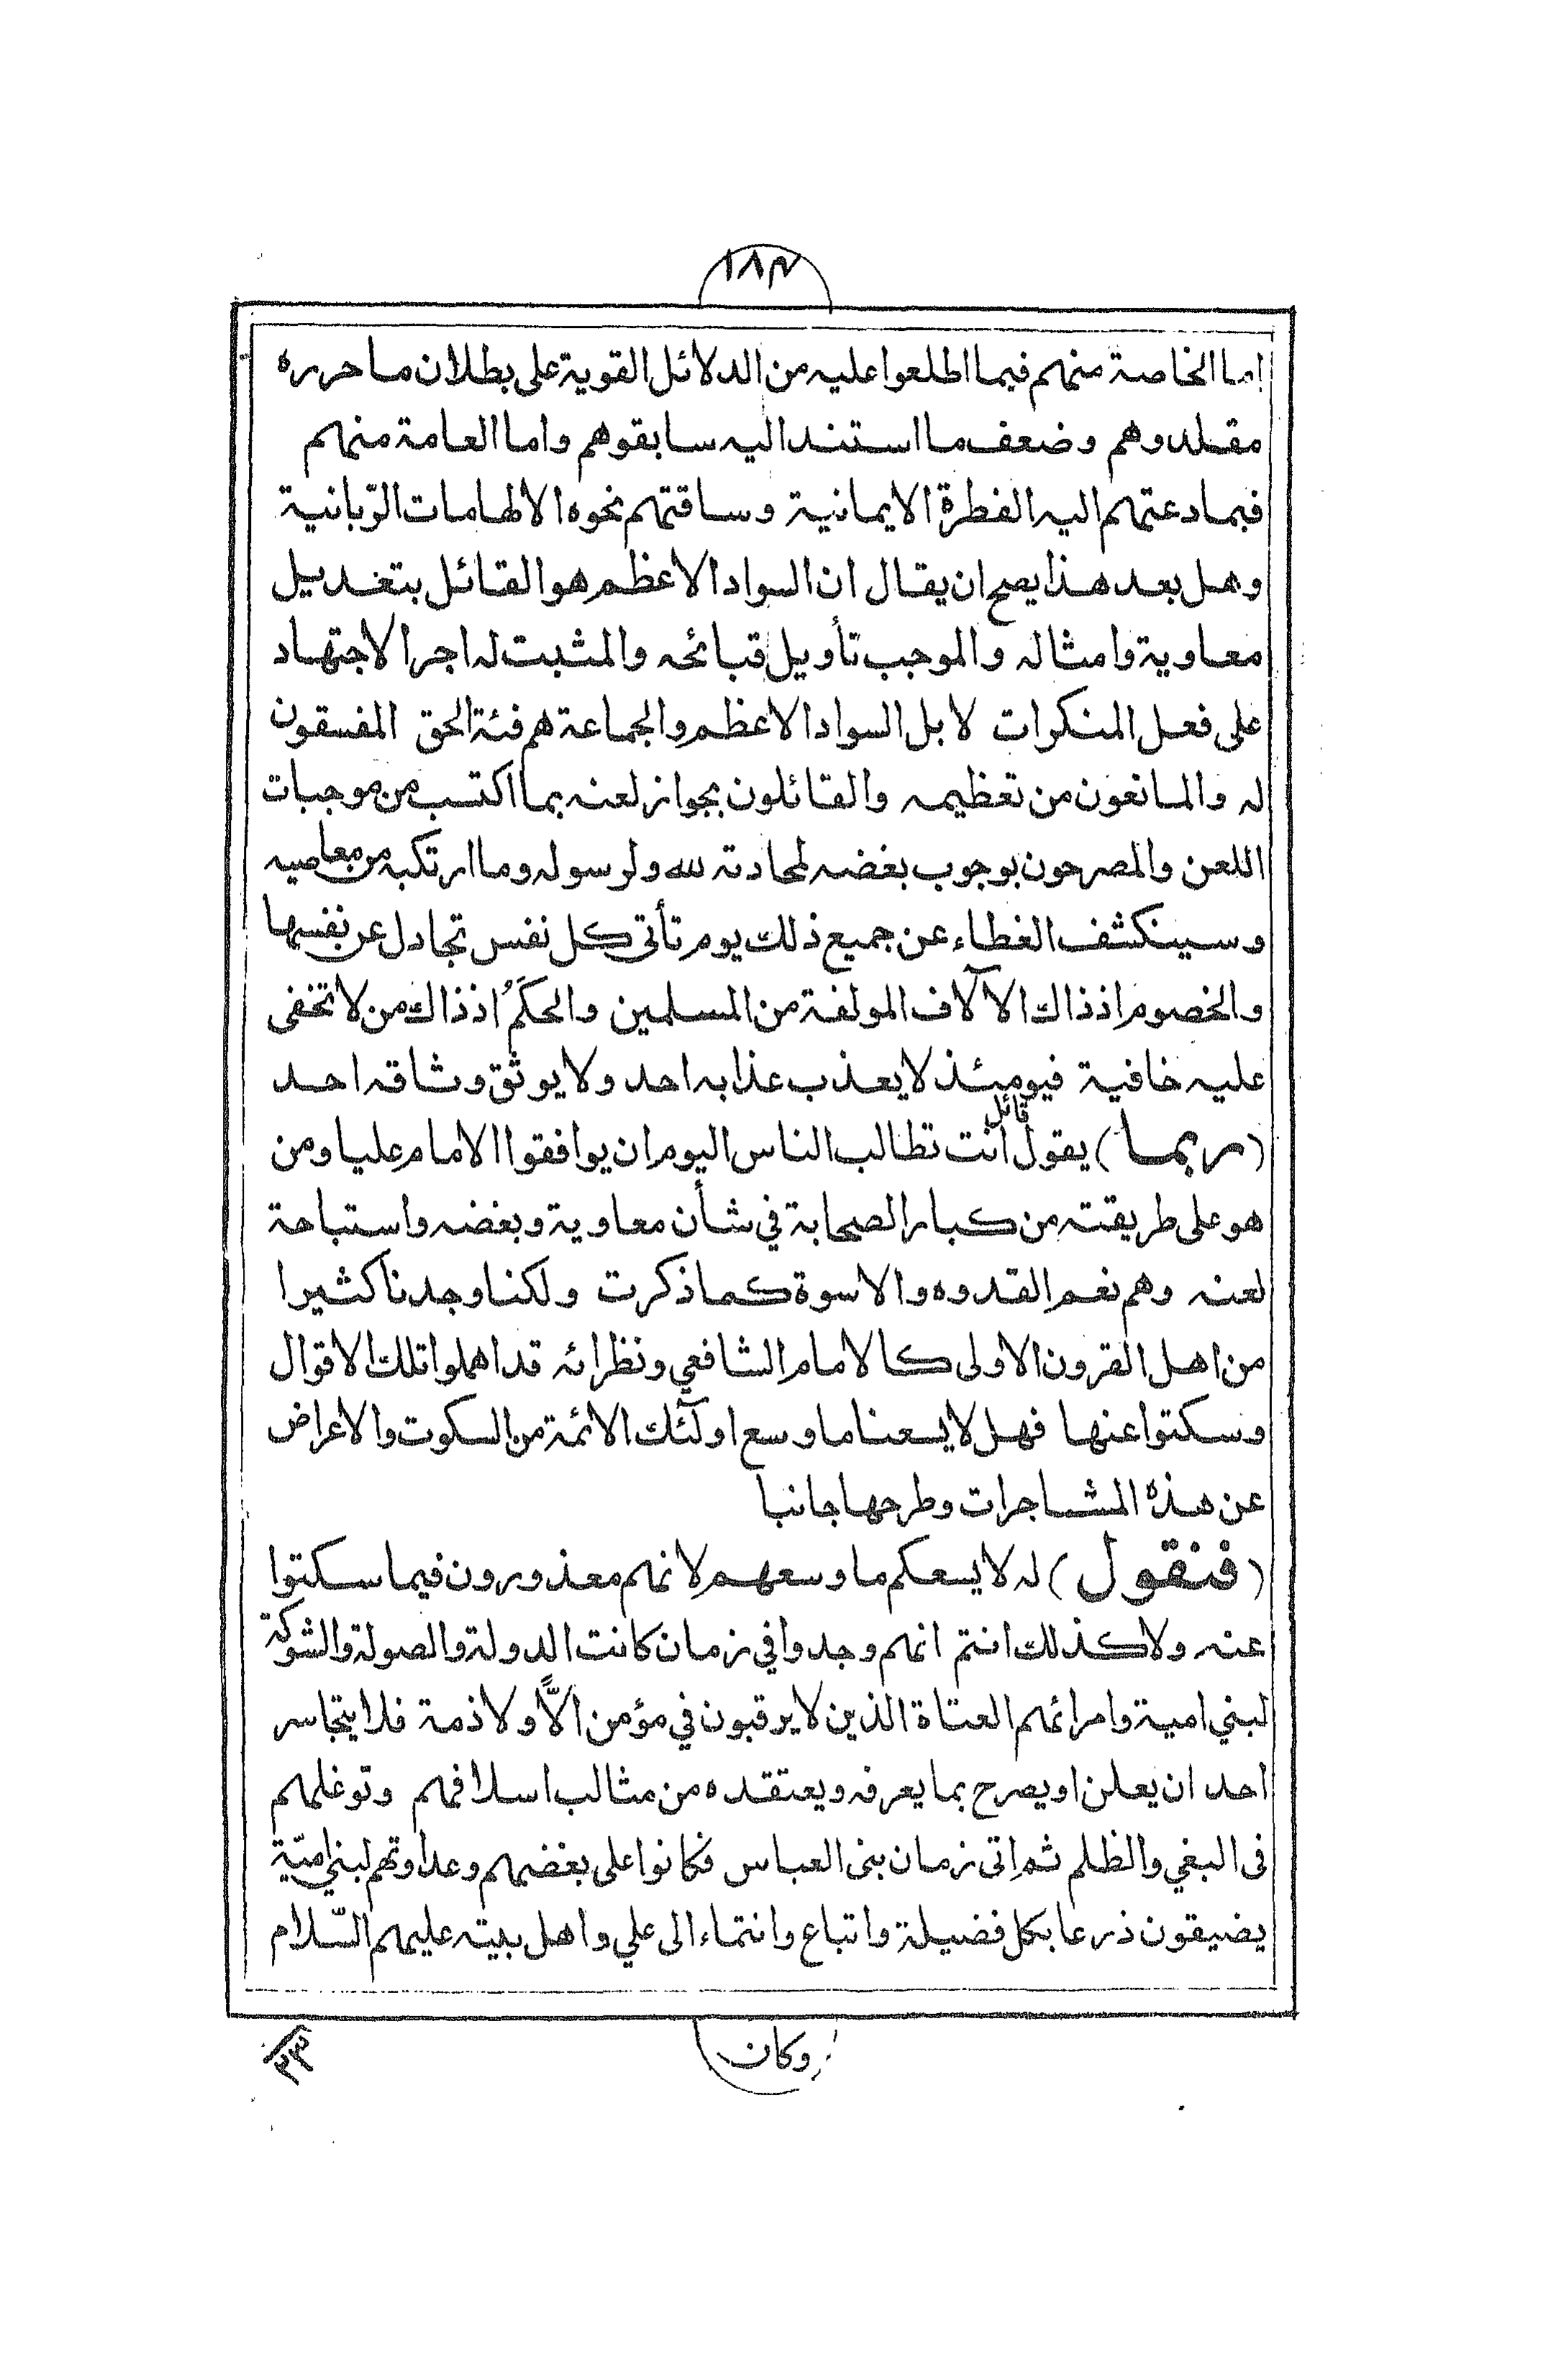 ١٨٤
اما الخاصة منهم فبما اطلعوا عليه من الدلائل القوية على بطلان ما حرره
مقلدوهم وضعف ما استند اليه سابقوهم واما العامة منهم
فبما دعتهم اليه الفطرة الايمانية وساقتهم نحوه الالهامات الربّانية
وهل بعد هذا يصح ان يقال ان السواد الاعظم هو القائل بتعديل
معاوية وامثاله والموجب تأويل قبائحه والمثبت له اجر الاجتهاد
على فعل المنكرات لا بل السواد الاعظم والجماعة هم فئة الحق المفسقون
له والمانعون من تعظيمه والقائلون بجواز لعنه بما اكتسب من موجبات
اللعن والمصرحون بوجوب بغضه لمحادته لله ولرسوله وما ارتكبه من معاصيه
وسينكشف الغطاء عن جميع ذلك يوم تأتى كل نفس تجادل عن نفسها
والخصوم اذ ذاك الآلاف المولفة من المسلمين والحكَمُ اذ ذاك من لا تخفى
عليه خافية فيومئذ لا يعذب عذابه احد ولا يوثق وثاقه احد
(ربما) يقول قائل انت تطالب الناس اليوم ان يوافقوا الامام عليا ومن
هو على طريقته من كبار الصحابة في شأن معاوية وبغضه واستباحة
لعنه وهم نعم القدوه والاسوة كما ذكرت ولكنا وجدنا كثيرا
من اهل القرون الاولى كالامام الشافعي ونظرائه قد اهملوا تلك الاقوال
وسكتوا عنها فهل لا يسعنا ما وسع اولٓئك الائمة من السكوت والاعراض
عن هذه المشاجرات وطرحها جانبا
(فنقول) له لا يسعكم ما وسعهم لانهم معذورون فيما سكتوا
عنه ولا كذلك انتم انهم وجدوا في زمان كانت الدولة والصولة والشوكة
لبني امية وامرائهم العتاة الذين لا يرقبون في مؤمن الاًّ ولا ذمة فلا يتجاسر
احد ان يعلن او يصرح بما يعرفه ويعتقده من مثالب اسلافهم وتوغلهم
فى البغي والظلم ثم اتى زمان بنى العباس فكانوا على بغضهم وعداوتهم لبني اميّة
يضيقون ذرعا بكل فضيلة واتباع وانتماء الى علي واهل بيته عليهم السّلام
وكان